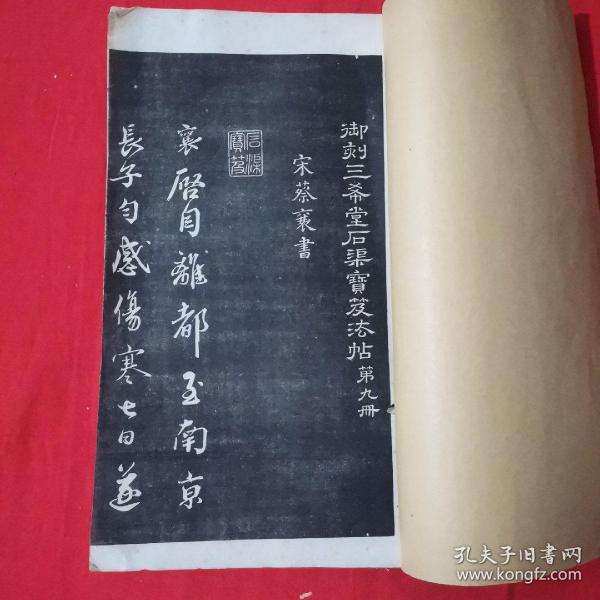 御刻三希堂石渠寶笈法帖 第九冊
宋蔡襄書
石渠寶笈
襄啓自離都至南京
長子勻感傷寒七日遂
孔夫子旧书网
www.kongfz.com